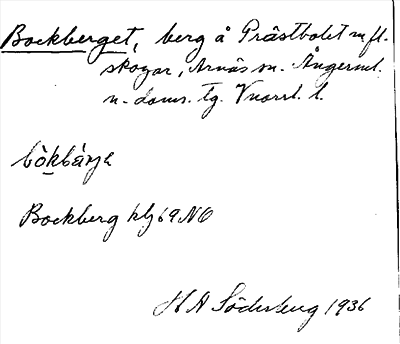 Bockberget, berg å Prästbolet m fl.
skogar, Arnäs sn. Ångerml.
n. doms. tg. Vnorrl. l.
bòkbárje
Bockberg kbl 69 NO
H A Söderberg 1936